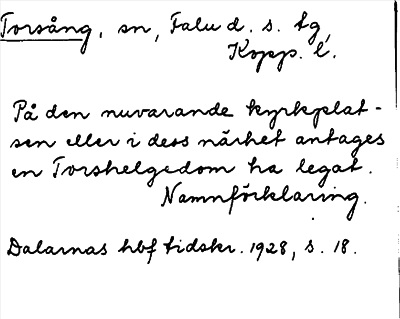 Torsång, sn, Falu d. s. tg,
Kopp. l.
På den nuvarande kyrkplat-
sen eller i dess närhet antages
en Torshelgedom ha legat.
Namnförklaring.
Dalarnas hbf tidskr. 1928, s. 18.